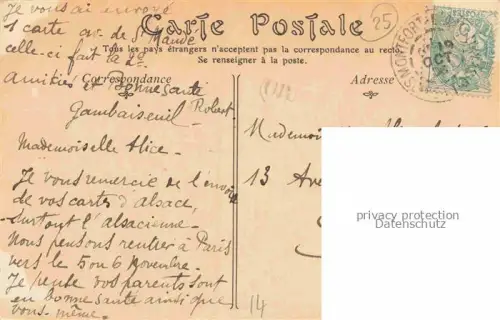 Je vous ai envoyé
1 carte av. de St Mandé
celle-ci fait la 2e
Amitiés et bonne santé
Robert
Gambaiseuil
Carte Postale
Tous les pays étrangers n'acceptent pas la correspondance au recto
Se renseigner à la poste.
Correspondance
Adresse
25
Mademoiselle Alice -
Je vous remercie de l'envoi
de vos cartes d'alsace,
- surtout l'alsacienne -
Nous pensons rentrer à Paris
vers le 5 ou 6 Novembre -
Je pense vos parents sont
en bonne santé ainsi que
vous-même.
13 Ave
14
OCT
privacy protection
Datenschutz